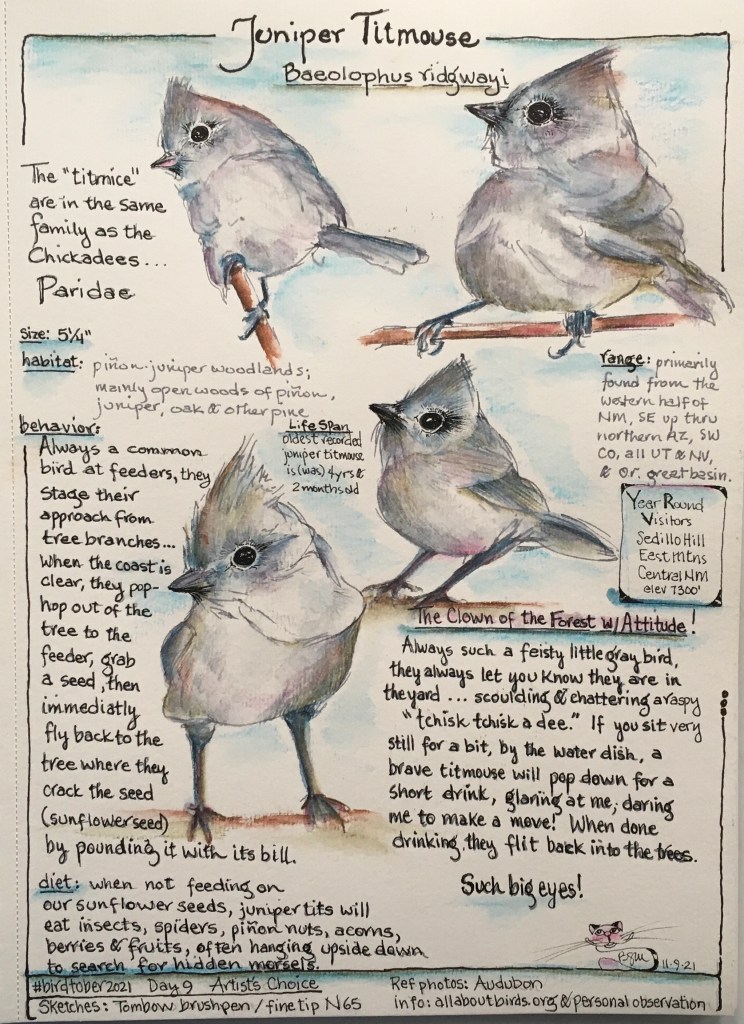 Juniper Titmouse
Baeolophus ridgwayi
The "titmice"
are in the same
family as the
Chickadees...
Paridae
Size: 5¼"
habitat: piñon-juniper woodlands;
mainly open woods of piñon,
juniper, oak & other pine
range: primarily
found from the
western half of
NM, SE up thru
northern AZ, SW
CO, all UT & NV,
& Or. great basin.
behavior:
Always a common
bird at feeders, they
stage their
approach from
tree branches...
When the coast is
clear, they pop-
hop out of the
tree to the
feeder, grab
a seed, then
immediatly
fly back to the
tree where they
crack the seed
(sunflower seed)
by pounding it with its bill.
Life Span
oldest recorded
juniper titmouse
is (was) 4 yrs &
2 months old
Year Round
Visitors
Sedillo Hill
East Mtns
Central NM
elev 7300'
The Clown of the Forest w/ Attitude!
Always such a feisty little gray bird,
they always let you know they are in
the yard... scoulding & chattering a raspy
"tchisk tchisk a dee." If you sit very
still for a bit, by the water dish, a
brave titmouse will pop down for a
short drink, glaring at me; daring
me to make a move! When done
drinking, they flit back into the trees.
Such big eyes!
diet: when not feeding on
our sunflower seeds, juniper tits will
eat insects, spiders, piñon nuts, acorns,
berries & fruits, often hanging upside down
to search for hidden morsels.
11-9-21
#birdtober2021 Day 9 Artist's Choice
Ref photos: Audubon
Sketches: Tombow brushpen / fine tip N65
info: allaboutbirds.org & personal observation